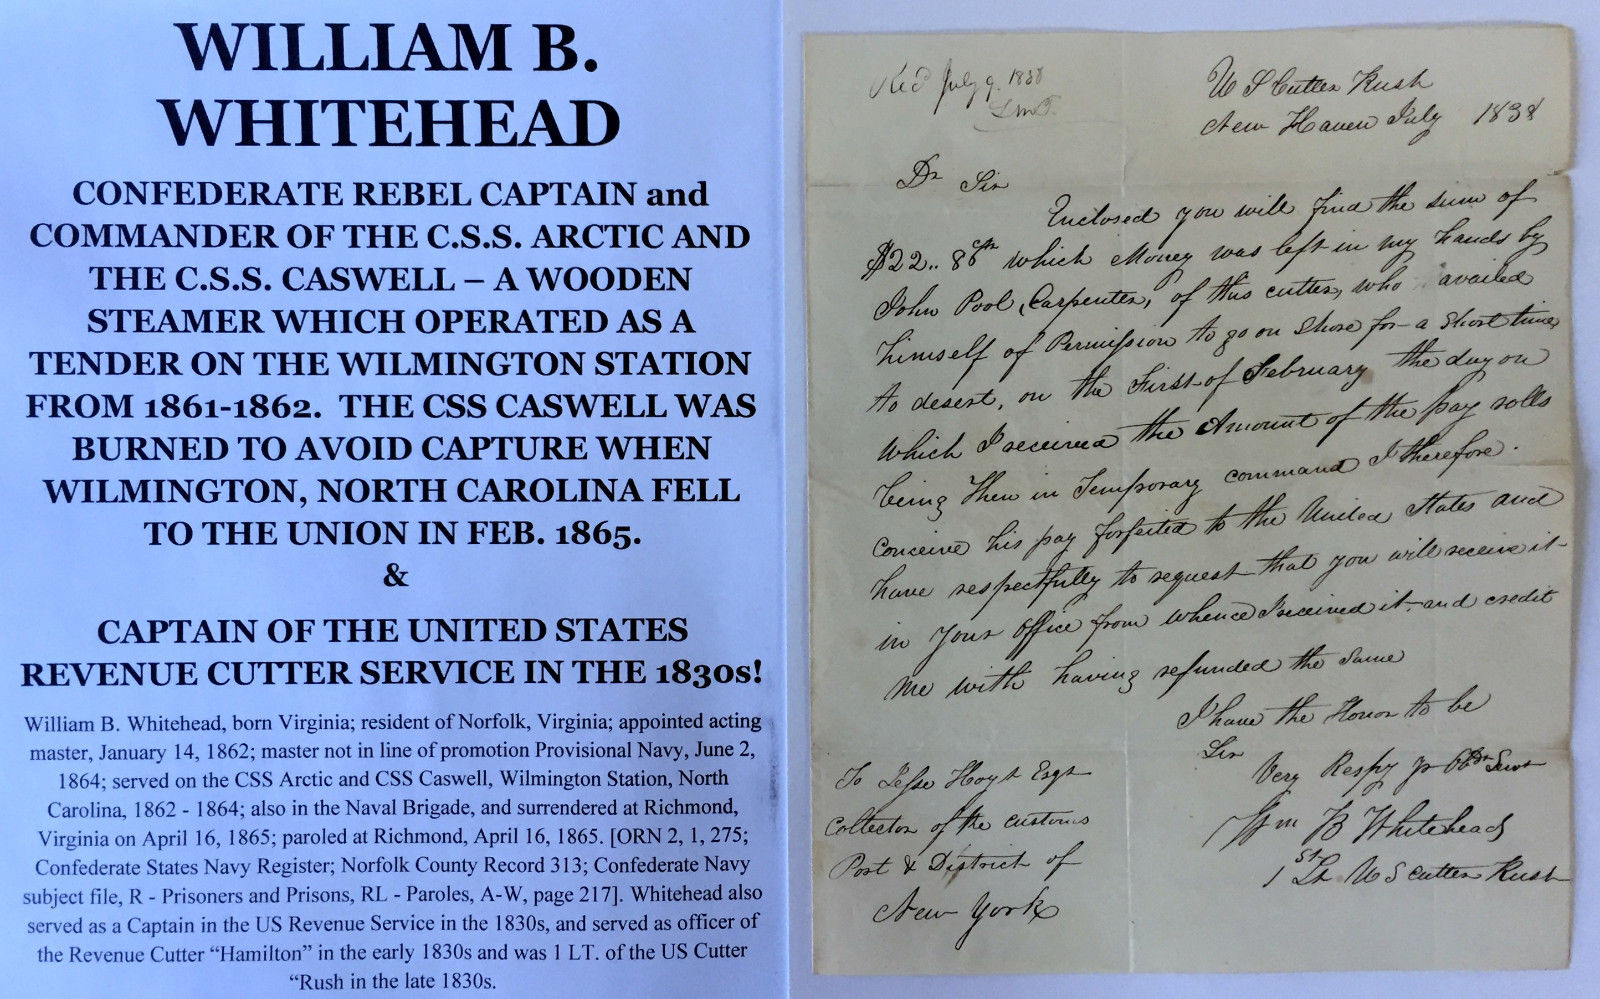 WILLIAM B.
WHITEHEAD
CONFEDERATE REBEL CAPTAIN and
COMMANDER OF THE C.S.S. ARCTIC AND
THE C.S.S. CASWELL – A WOODEN
STEAMER WHICH OPERATED AS A
TENDER ON THE WILMINGTON STATION
FROM 1861-1862. THE CSS CASWELL WAS
BURNED TO AVOID CAPTURE WHEN
WILMINGTON, NORTH CAROLINA FELL
TO THE UNION IN FEB. 1865.
&
CAPTAIN OF THE UNITED STATES
REVENUE CUTTER SERVICE IN THE 1830s!
William B. Whitehead, born Virginia; resident of Norfolk, Virginia; appointed acting
master, January 14, 1862; master not in line of promotion Provisional Navy, June 2,
1864; served on the CSS Arctic and CSS Caswell, Wilmington Station, North
Carolina, 1862 - 1864; also in the Naval Brigade, and surrendered at Richmond,
Virginia on April 16, 1865; paroled at Richmond, April 16, 1865. [ORN 2, 1, 275;
Confederate States Navy Register; Norfolk County Record 313; Confederate Navy
subject file, R - Prisoners and Prisons, RL - Paroles, A-W, page 217]. Whitehead also
served as a Captain in the US Revenue Service in the 1830s, and served as officer of
the Revenue Cutter “Hamilton” in the early 1830s and was 1 LT. of the US Cutter
“Rush in the late 1830s.
Rec'd July 9. 1838
U S Cutter Rush
New Haven July 1838
Dr Sir
Enclosed you will find the sum of
$22.. 86 cts which Money was left in my hands by
John Pool, Carpenter, of this cutter, who availed
himself of Permission to go on Shore for a Short time,
to desert, on the First of February the day on
which I received the Amount of the pay rolls
being then in Temporary command I therefore.
conceive his pay forfeited to the United States and
have respectfully to request that you will receive it
in your office from whence I received it, and credit
me with having refunded the same
I have the Honor to be
Sir
Very Respy yr Obdt Servt
Wm B Whitehead
1st Lt U S cutter Rush
To Jesse Hoyt Esqr
Collector of the customs
Port & District of
New York